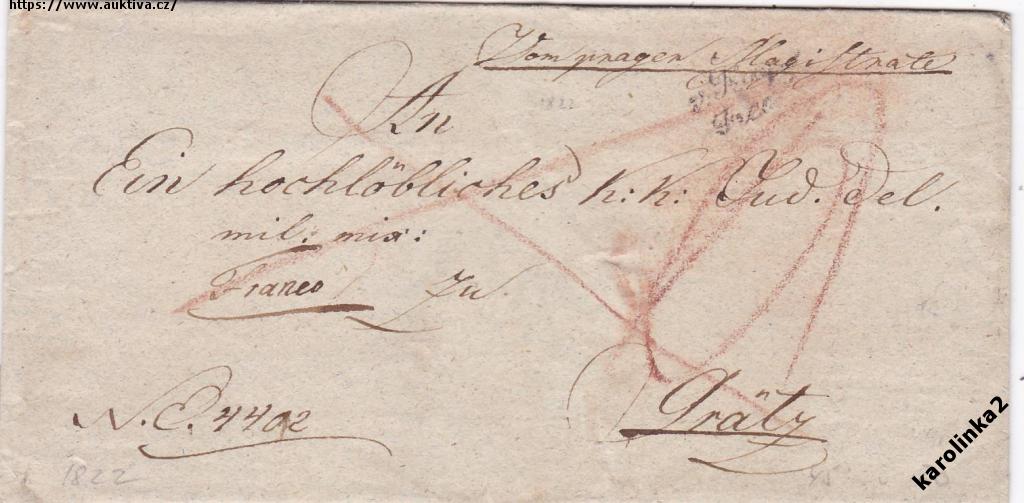 https://www.auktiva.cz/
Vom prager Magistrate
1822
An
Ein hochlöbliches K: K: Jud. Del.
mil: mix:
Franco Zu
N. E. 4402
Grätz
1822
karolinka2